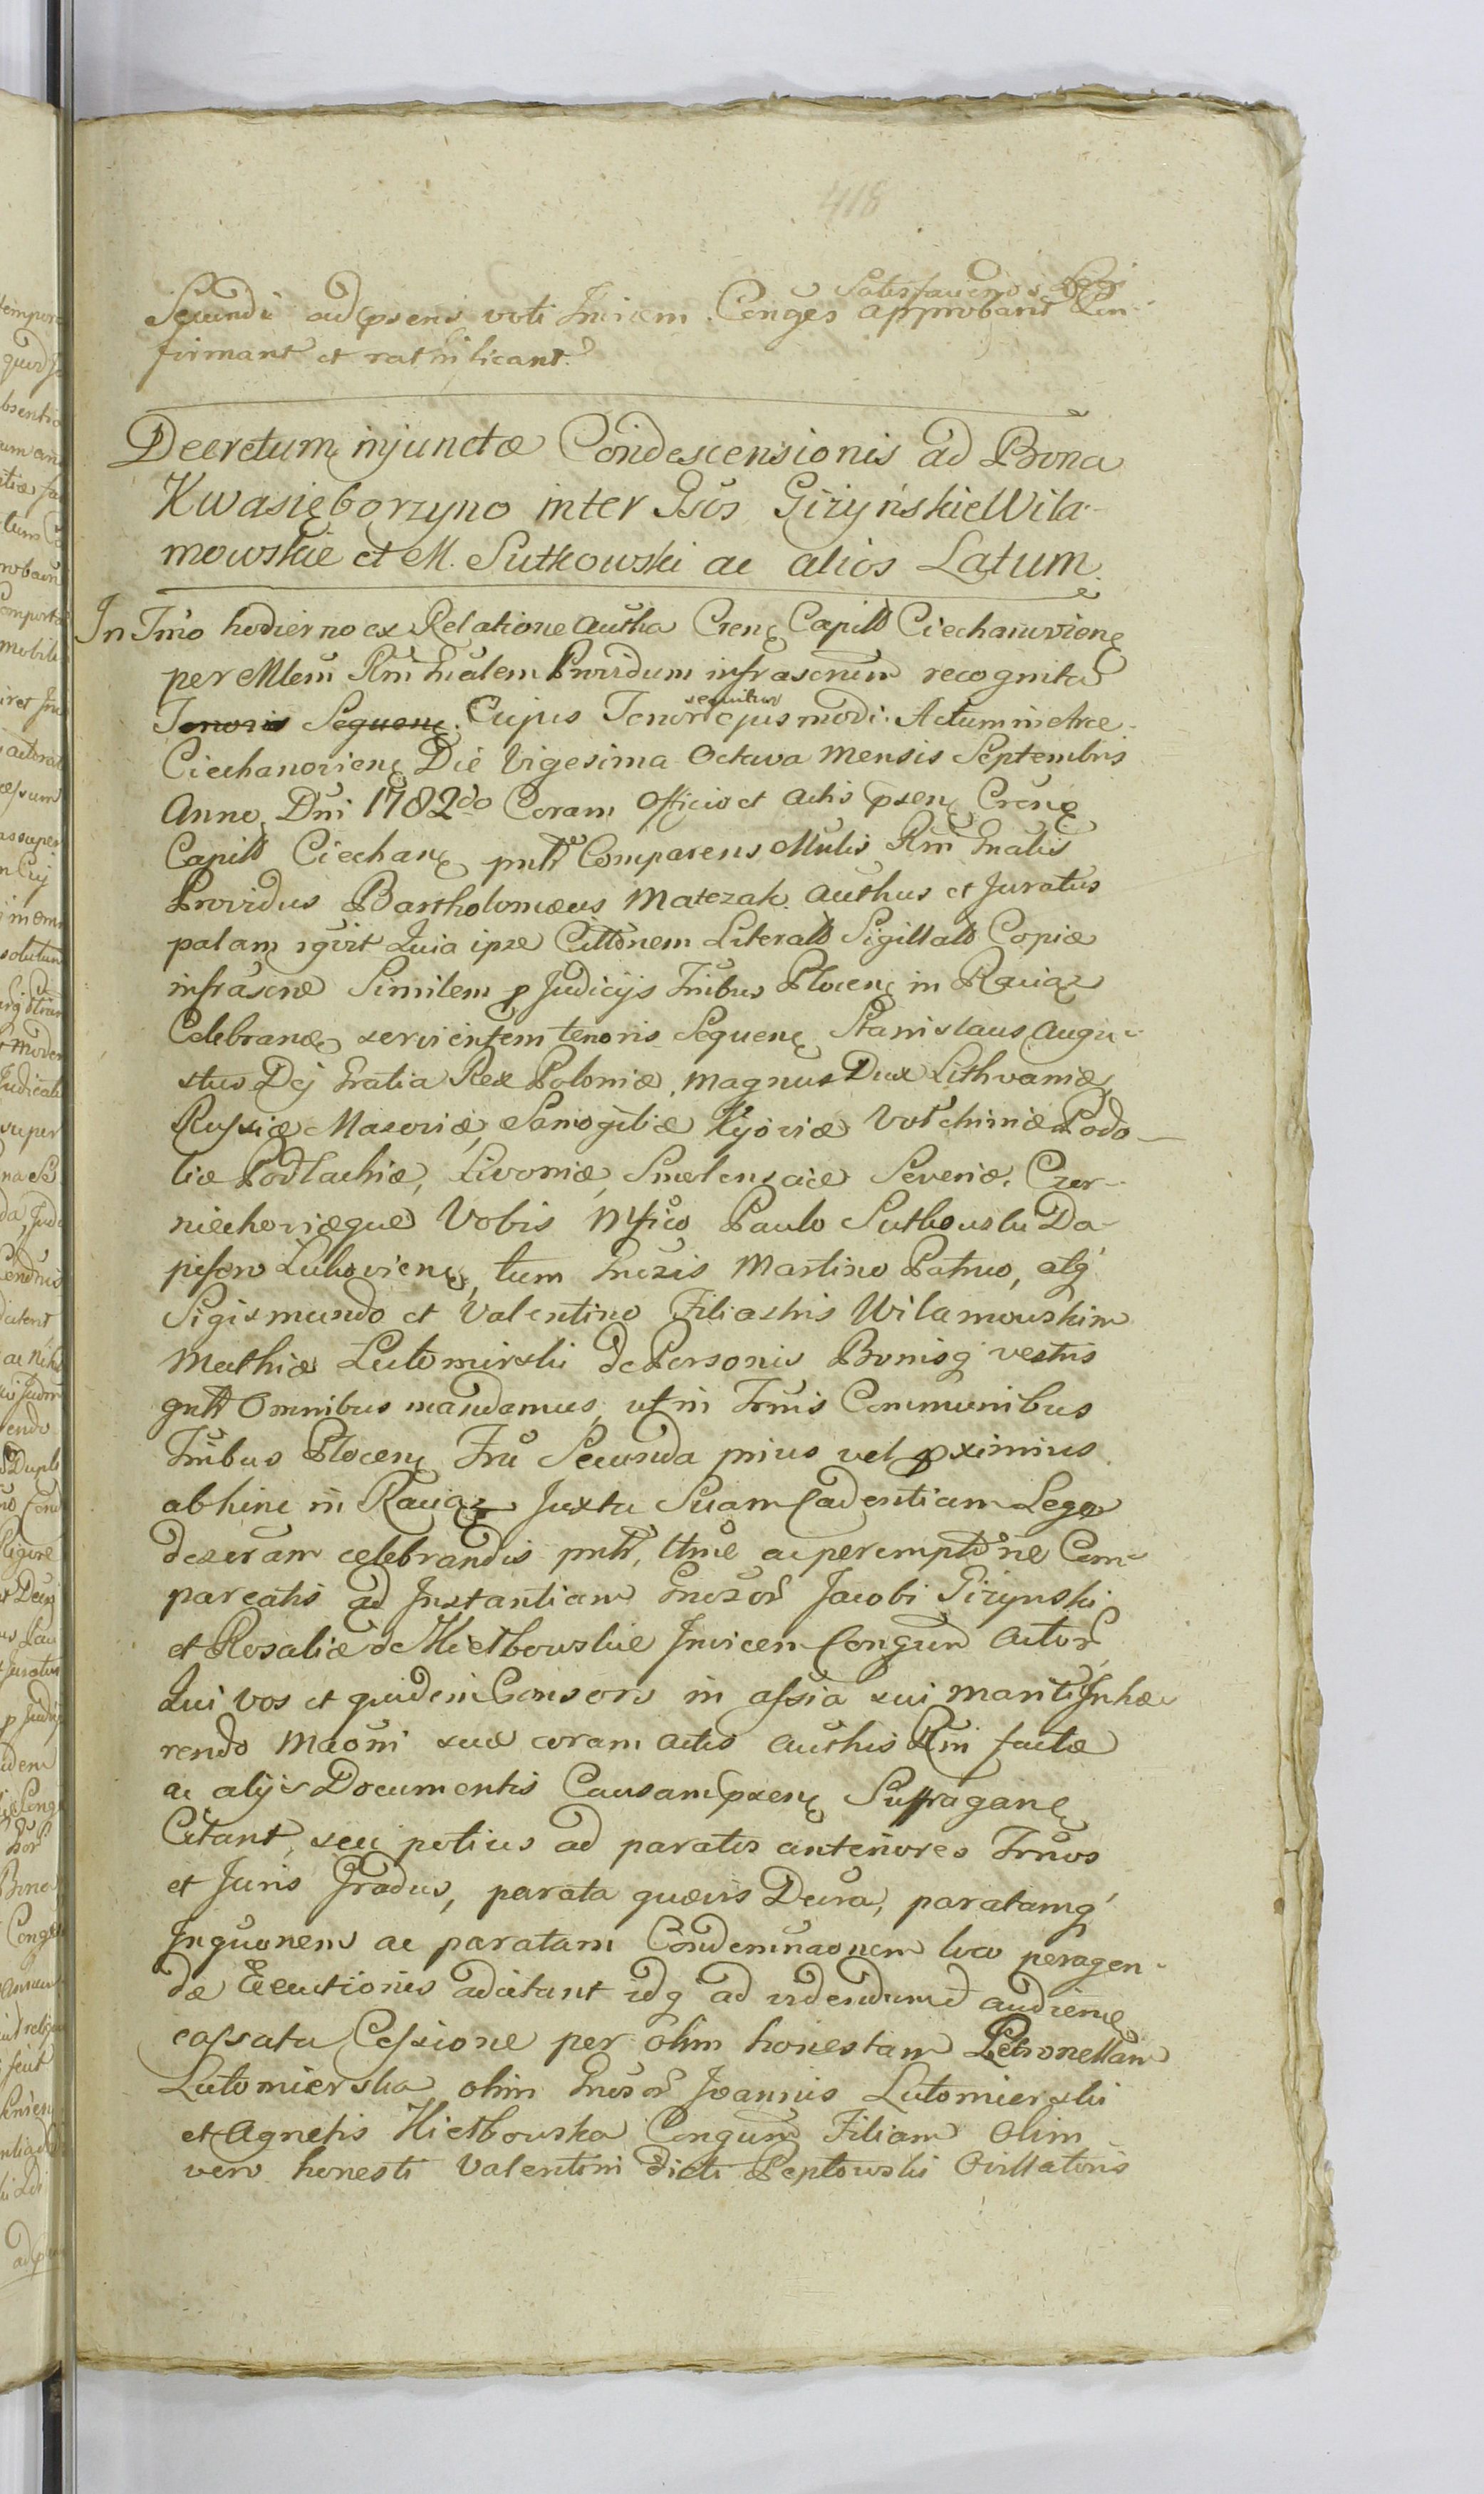 418
Satisfaciendo Legi
Secundi ad psens voti Invicem Conges approbant Con-
firmant et rathificant.
Decretum injunctæ Condescensionis ad Bona
Kwasięborzyno inter Gsos Giżyńskie Wila-
mowskie et M. Sutkowski ac alios Latum.
In Tmo hodierno ex Relatione autha Crens Capitl Ciechanoviens
per Mlem Rni Gralem Providum infrascrum recognita
Tenoris Sequens. Cujus Tenor sequitur ejusmodi. Actum in Arce
Ciechanoviens Die Vigesima Octava Mensis Septembris
Anno Dni 1782do Coram Officio et Actis psens Crens
Capitl Ciechans pnltr Comparens Mnlis Rni Gnalis
Providus Bartholomæus Matczak authus et Juratus
palam rgvit Quia ipse Cittonem Literalb Sigillatb Copiæ
infrascræ Similem p Judicijs Tribus Plocens in Raciąz
Celebrans servientem tenoris Sequens Stanislaus Augu-
stus Dej Gratia Rex Poloniæ, Magnus Dux Lithvaniæ,
Russiæ Masoviæ, Samogitiæ Kijoviæ Volchiniæ Podo-
liæ Podlachiæ, Livoniæ, Smolensciæ Severiæ, Czer-
niechoviæque Vobis Mfico Paulo Sutkowski Da-
pifero Lukoviens, tum Grosis Martino Patruo, atq
Sigismundo et Valentino Filiastris Wilamowskim
Mathiæ Lutomirski de Personis Bonisq vestris
gnltr Omnibus mandamus, ut in Trnis Communibus
Tribus Plocens Fria Secunda prius vel pximius
abhinc in Raciąz Juxta Suam Cadentiam Lege
dexeram celebrandis pnltr, ttme ac peremptorie Com-
pareatis ad Instantiam Grosor Jacobi Giżynski
et Rosaliæ de Kiełbowskie Invicem Congum Actor
Qui vos et quidem Consors in assia sui mariti Inhæ-
rendo Maoni suæ coram actis authis Rni factæ
ac alijs Documentis Causam psens Suffragans
Citant, seu potius ad paratos anteriores Trnos
et Juris Gradus, parata quævis Decra, paratamq
Inquonem ac paratam Condemnaonem loco peragen-
dæ Executionis adcitant idq ad videndum et audiens
cassata Cessione per olim honestam Petronellam
Lutomierska olim Grosor Joannis Lutomierski
et Agnetis Kiełbowska Congum Filiam Olim
vero honesti Valentini dicti Peptowski Oivillatoris